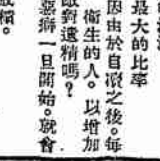 最大的比率
因由於自瀆之後。每
衛生的人。以增加
敢對遺精嗎？
惡獅一旦開始。就會